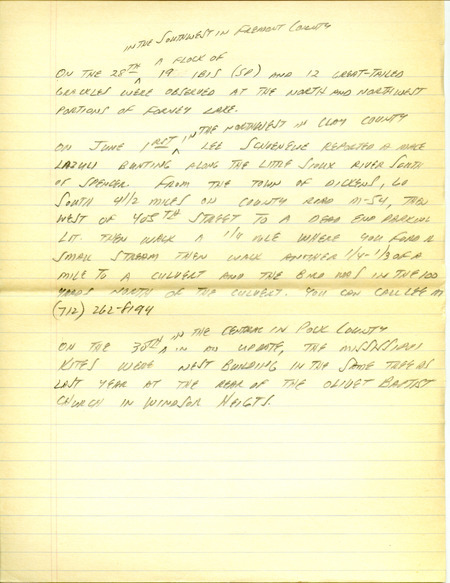 IN THE SOUTHWEST IN FREMONT COUNTY
A FLOCK OF
ON THE 28TH ^ 19 IBIS (SP) AND 12 GREAT-TAILED
GRACKLES WERE OBSERVED AT THE NORTH AND NORTHWEST
PORTIONS OF FORNEY LAKE.
IN THE NORTHWEST IN CLAY COUNTY
ON JUNE 1RST ^ LEE SCHOENEWE REPORTED A MALE
LAZULI BUNTING ALONG THE LITTLE SIOUX RIVER SOUTH
OF SPENCER. FROM THE TOWN OF DICKENS, GO
SOUTH 4 1/2 MILES ON COUNTY ROAD M-54, THEN
WEST OF 405TH STREET TO A DEAD END PARKING
LOT. THEN WALK A 1/4 MILE WHERE YOU FORD A
SMALL STREAM THEN WALK ANOTHER 1/4-1/3 OF A
MILE TO A CULVERT AND THE BIRD WAS IN THE 100
YARDS NORTH OF THE CULVERT. YOU CAN CALL LEE AT
(712) 262-8194
IN THE CENTRAL IN POLK COUNTY
ON THE 30TH ^ IN AN UPDATE, THE MISSISSIPPI
KITES WERE NEST BUILDING IN THE SAME TREE AS
LAST YEAR AT THE REAR OF THE OLIVET BAPTIST
CHURCH IN WINDSOR HEIGTS.